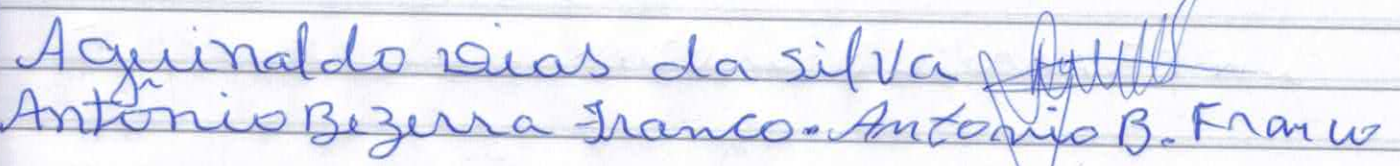 Aguinaldo Dias da Silva
Antônio Bezerra Franco. Antonio B. Franco